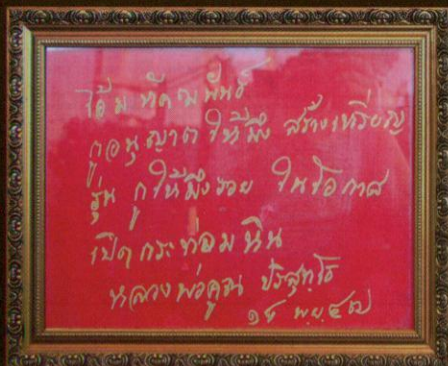 ไอ้ม หีคมพันธ์
กูอนุญาต ให้มึง สร้างเหรียญ
รุ่น กูให้มึงรวย ในโอกาส
เปิดกระท่อมหิน
หลวงพ่อคูณ ปริสุทฺโธ
๑๕ พ.ย. ๔๗